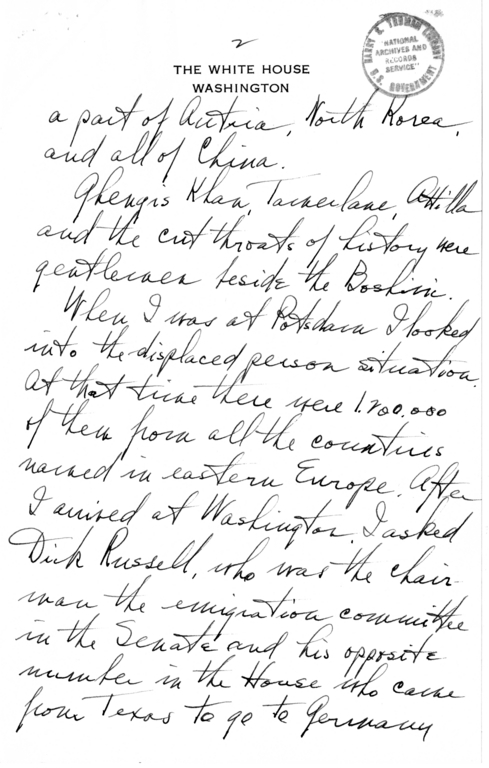 2
THE WHITE HOUSE
WASHINGTON
HARRY S. TRUMAN LIBRARY
"NATIONAL
ARCHIVES AND
RECORDS
SERVICE"
U.S. GOVERNMENT
a part of Autria, North Korea,
and all of China.
Ghengis Khan, Tamerlane, Attilla
and the cut throats of history were
gentlemen beside the
When I was at Potsdam I looked
into the displaced person situation.
At that time there were 1,200,000
of them from all the countries
named in eastern Europe. After
I arrived at Washington, I asked
Dick Russell, who was the chair-
man the emigration committee
in the Senate and his opposite
number in the House who came
from Texas to go to Germany